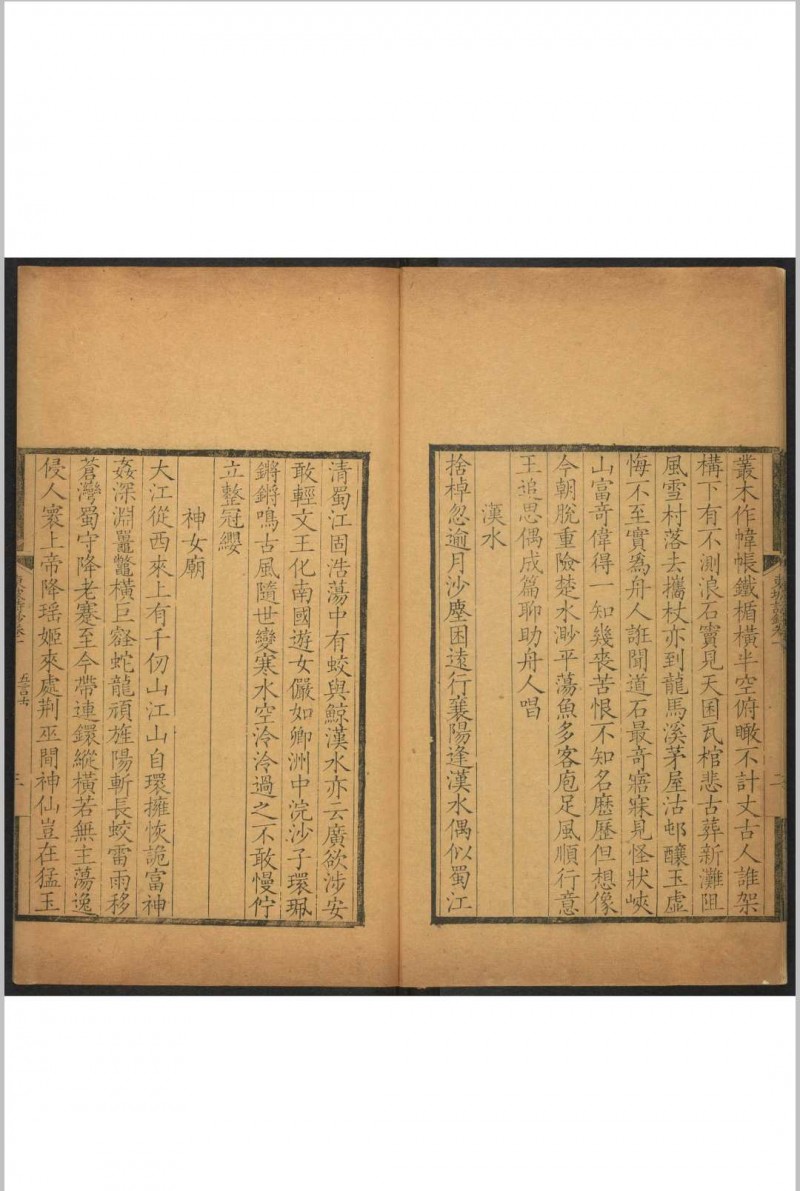 叢木作幃帳鐵楯橫半空俯瞰不計丈古人誰架
構下有不測浪石竇見天囷瓦棺悲古葬新灘阻
風雪村落去攜杖亦到龍馬溪茅屋沽邨釀玉虛
悔不至實爲舟人誑聞道石最奇寤寐見怪狀峽
山富奇偉得一知幾喪苦恨不知名歷歷但想像
今朝脫重險楚水渺平蕩魚多客庖足風順行意
王追思偶成篇聊助舟人唱
漢水
捨棹忽逾月沙塵困遠行襄陽逢漢水偶似蜀江
清蜀江固浩蕩中有蛟與鯨漢水亦云廣欲涉安
敢輕文王化南國遊女儼如卿洲中浣沙子環珮
鏘鏘鳴古風隨世變寒水空泠泠過之不敢慢佇
立整冠纓
神女廟
大江從西來上有千仞山江山自環擁恢詭富神
姦深淵鼉鼈橫巨壑蛇龍頑旌陽斬長蛟雷雨移
蒼灣蜀守降老蹇至今帶連鐶縱橫若無主蕩逸
侵人寰上帝降瑤姬來處荆巫間神仙豈在猛玉
五言古